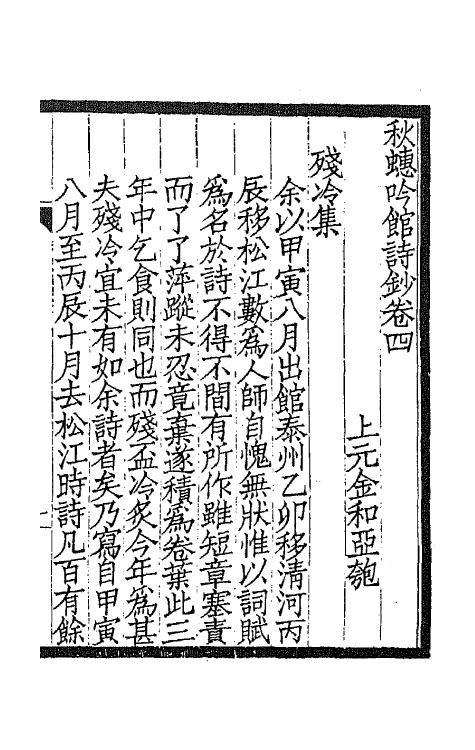 秋蟪吟館詩鈔卷四
上元金和亞匏
殘冷集
余以甲寅八月出館泰州乙卯移清河丙
辰移松江數爲人師自愧無狀惟以詞賦
爲名於詩不得不間有所作雖短章塞責
而了了萍蹤未忍竟棄遂積爲卷葉此三
年中乞食則同也而殘盃冷炙今年爲甚
夫殘冷宜未有如余詩者矣乃寫自甲寅
八月至丙辰十月去松江時詩凡百有餘